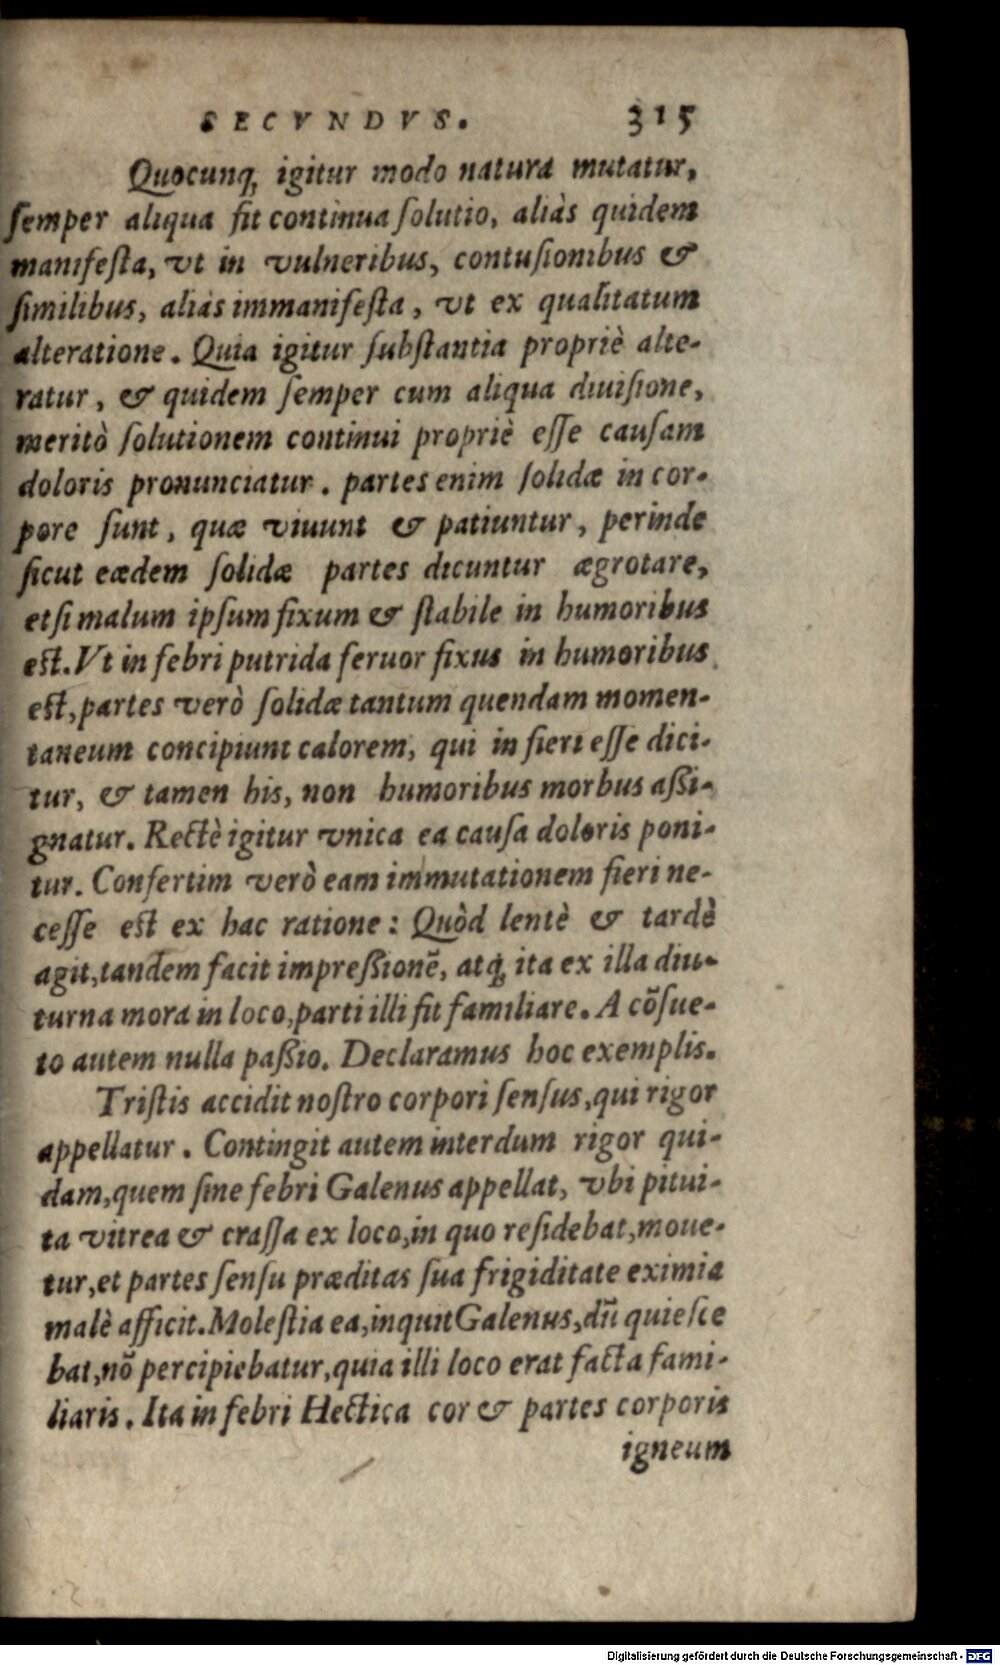 SECVNDVS. 315
Quocunq; igitur modo natura mutatur,
ſemper aliqua fit continua ſolutio, aliàs quidem
manifeſta, vt in vulneribus, contuſionibus &
ſimilibus, aliàs immanifeſta, vt ex qualitatum
alteratione. Quia igitur ſubſtantia propriè alte-
ratur, & quidem ſemper cum aliqua diuiſione,
meritò ſolutionem continui propriè eſſe cauſam
doloris pronunciatur. partes enim ſolidæ in cor-
pore ſunt, quæ viuunt & patiuntur, perinde
ſicut eædem ſolidæ partes dicuntur ægrotare,
etſi malum ipſum fixum & ſtabile in humoribus
eſt. Vt in febri putrida feruor fixus in humoribus
eſt, partes verò ſolidæ tantum quendam momen-
taneum concipiunt calorem, qui in fieri eſſe dici-
tur, & tamen his, non humoribus morbus aßi-
gnatur. Rectè igitur vnica ea cauſa doloris poni-
tur. Confertim verò eam immutationem fieri ne-
ceſſe eſt ex hac ratione: Quòd lentè & tardè
agit, tandem facit impreßionē, atq; ita ex illa diu-
turna mora in loco, parti illi fit familiare. A cōſue-
to autem nulla paßio. Declaramus hoc exemplis.
Triſtis accidit noſtro corpori ſenſus, qui rigor
appellatur. Contingit autem interdum rigor qui-
dam, quem ſine febri Galenus appellat, vbi pitui-
ta vitrea & craſſa ex loco, in quo reſidebat, moue-
tur, et partes ſenſu præditas ſua frigiditate eximia
malè afficit. Moleſtia ea, inquit Galenus, dū quieſce
bat, nō percipiebatur, quia illi loco erat facta fami-
liaris. Ita in febri Hectica cor & partes corporis
igneum
Digitalisierung gefördert durch die Deutsche Forschungsgemeinschaft - DFG